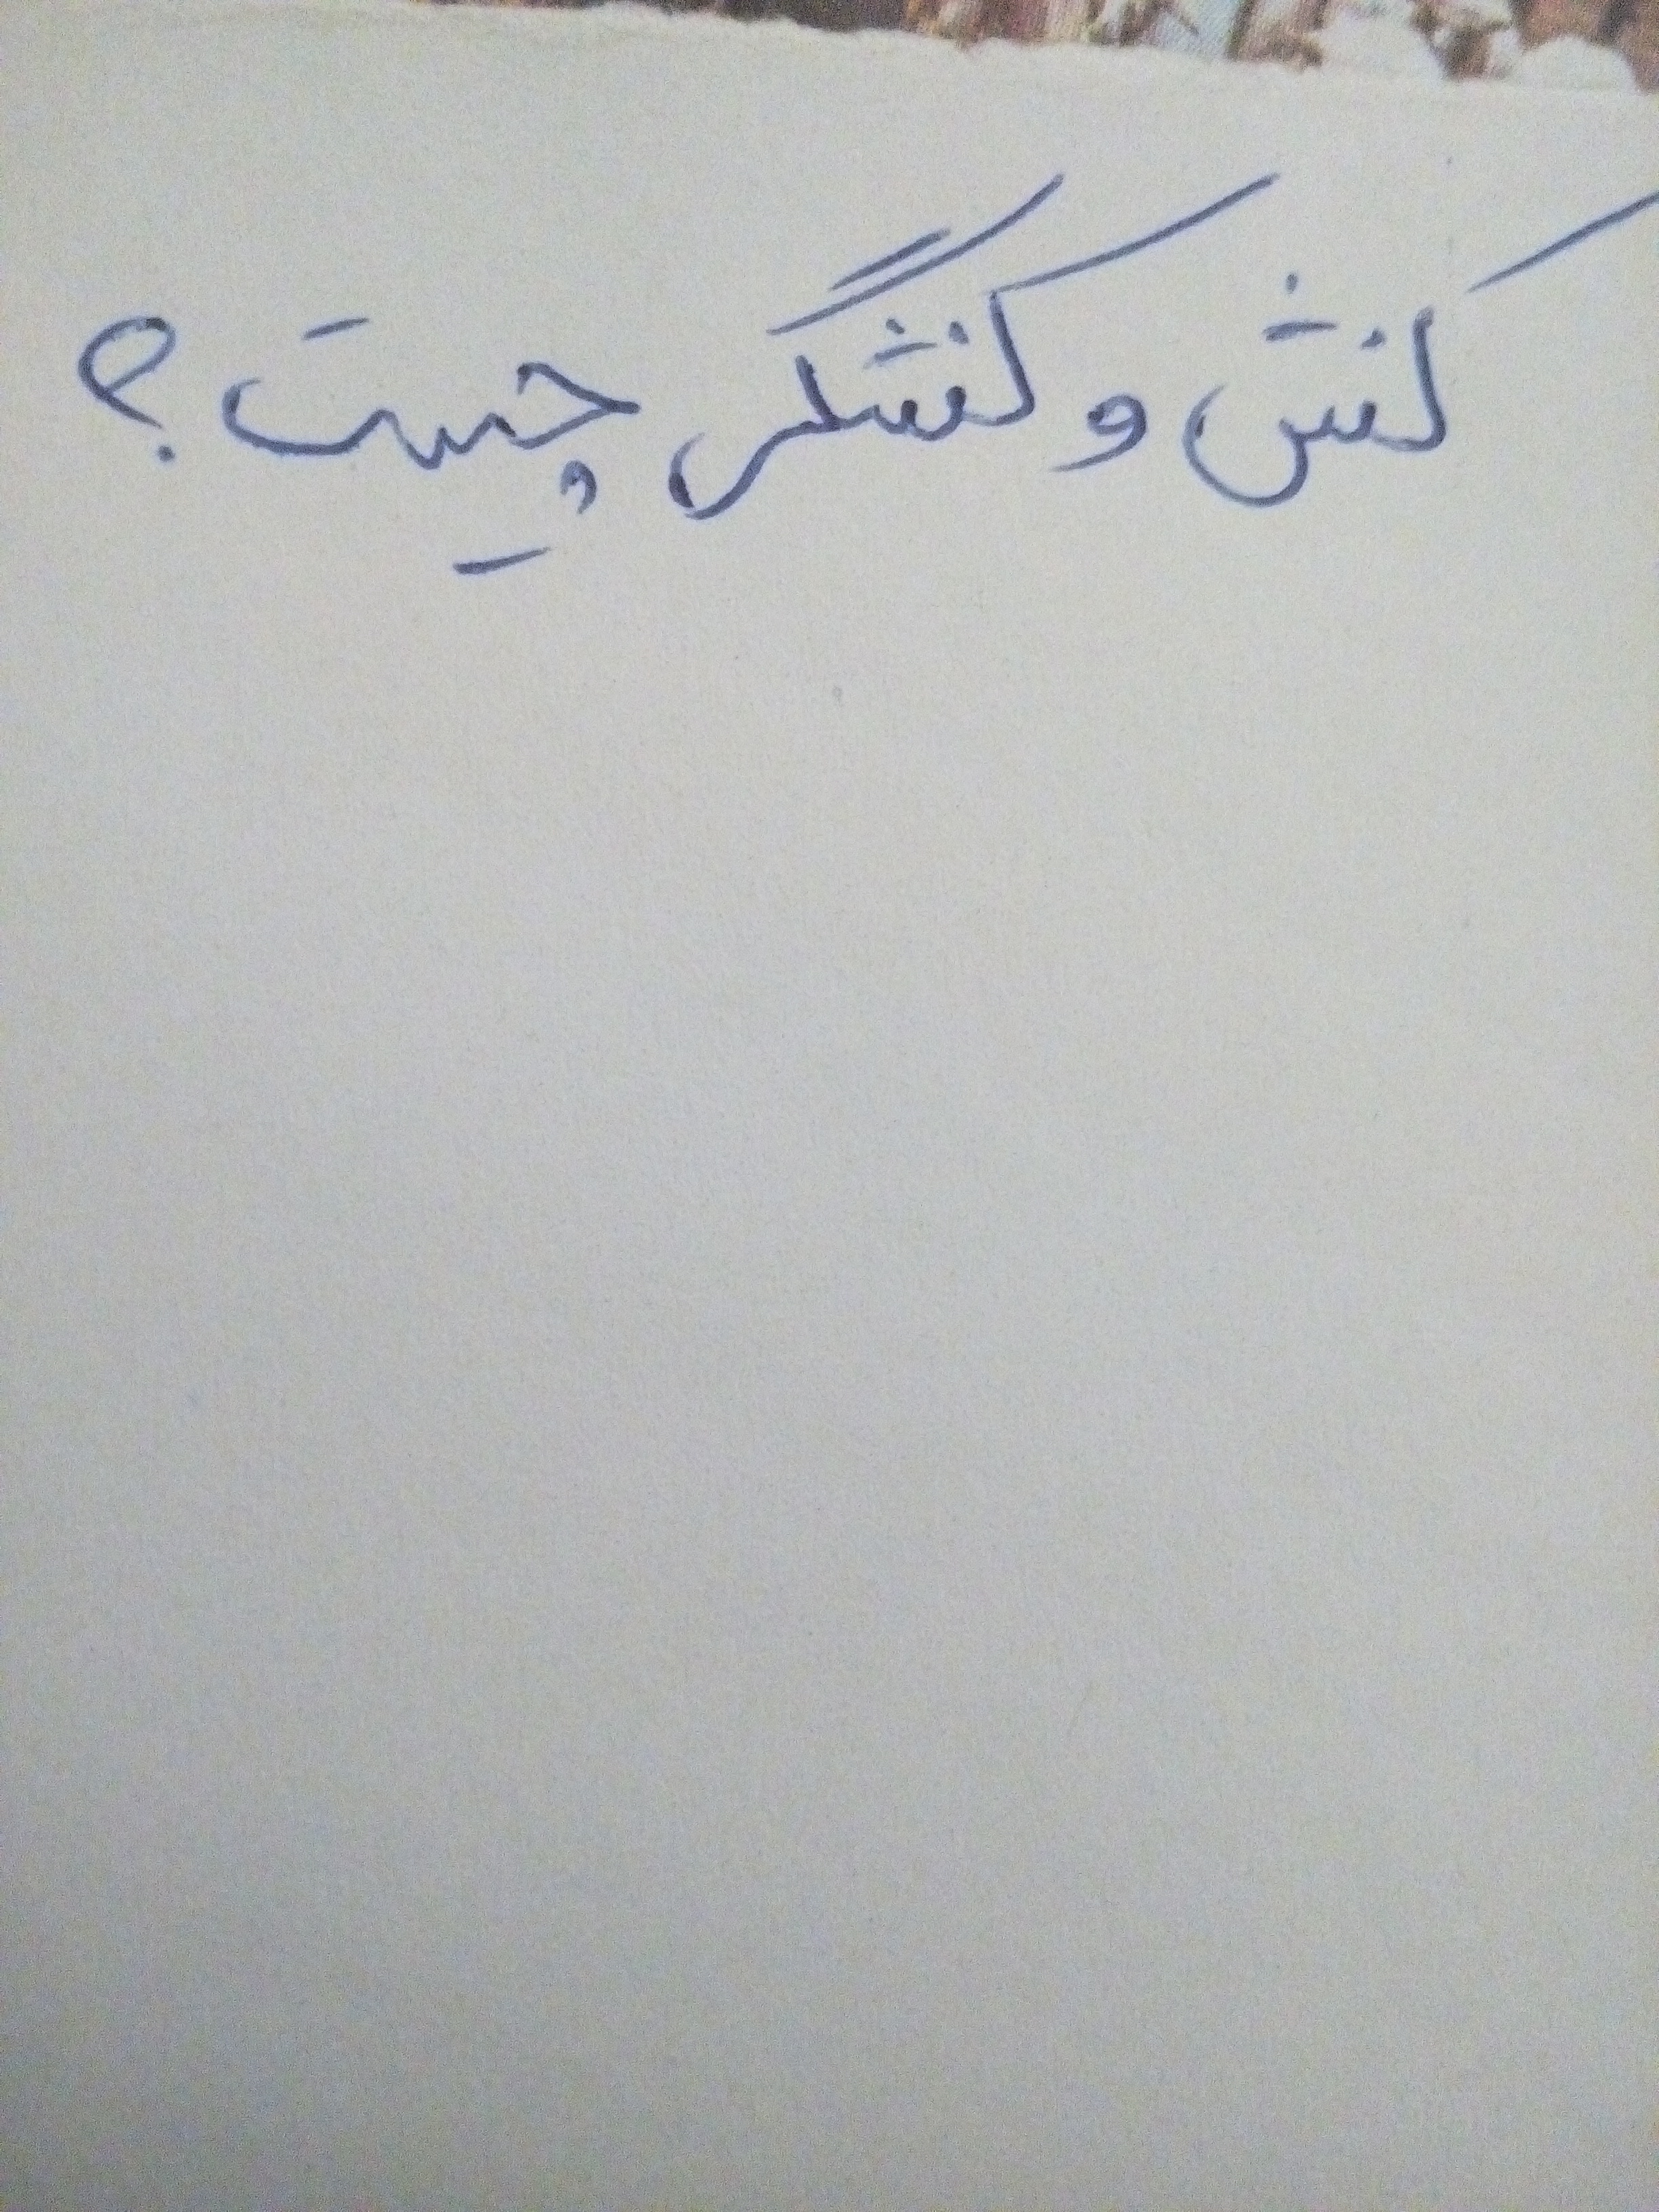 کنش و کنشگر چیست؟